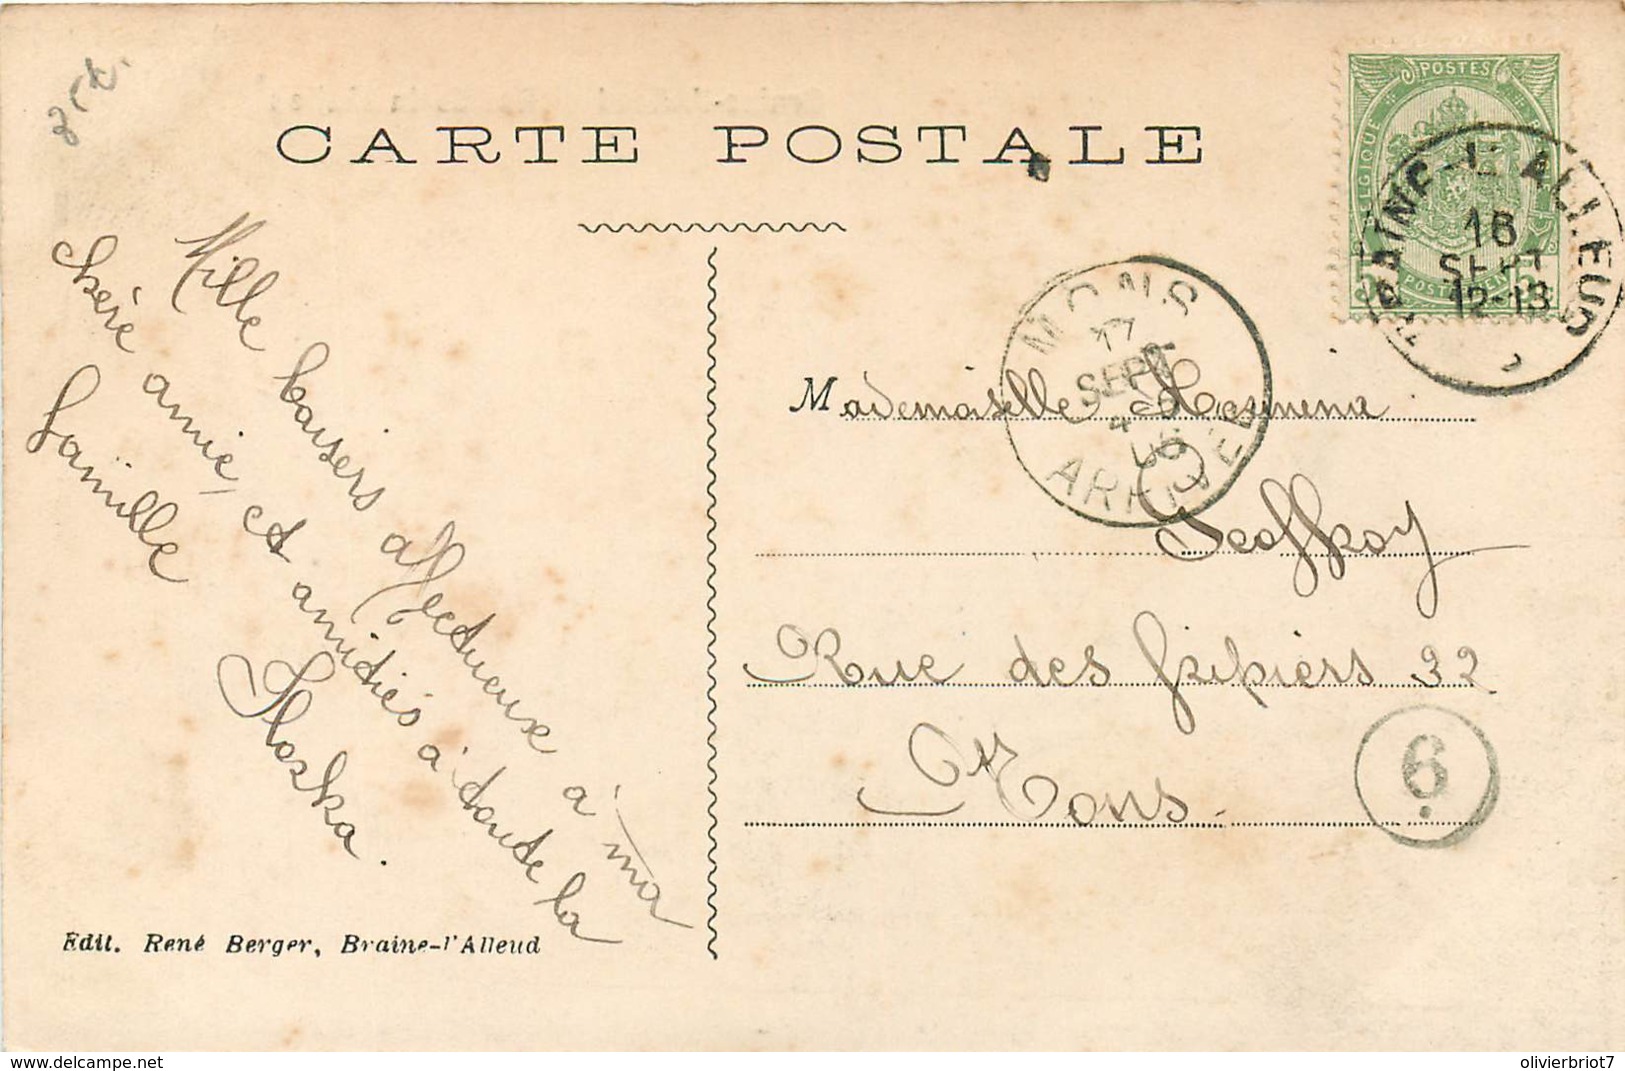 CARTE POSTALE
POSTES
BELGIQUE
BRAINE-L'ALLEUD
16
SEPT
12-13
MONS
17
SEPT
4
06
ARRIVÉE
Mille baisers affectueux à ma
chère amie, et amitiés à toute la
famille
Mademoiselle
Geoffroy
Rue des fripiers 32
Mons.
6
Edit. René Berger, Braine-l'Alleud
https://www.delcampe.net
olivierbriot7